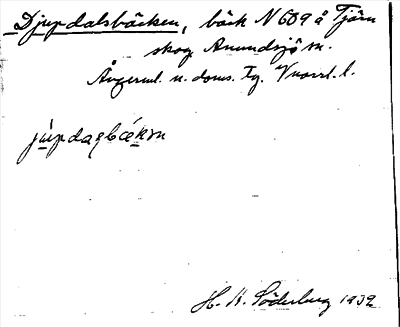 Djupdalsbäcken, bäck N 609 å Tjärn
skog Anundsjö sn.
Ångerml. n. doms. Tg. Vnorrl. l.
jupdagbäkɷn
H. K. Söderberg 1932